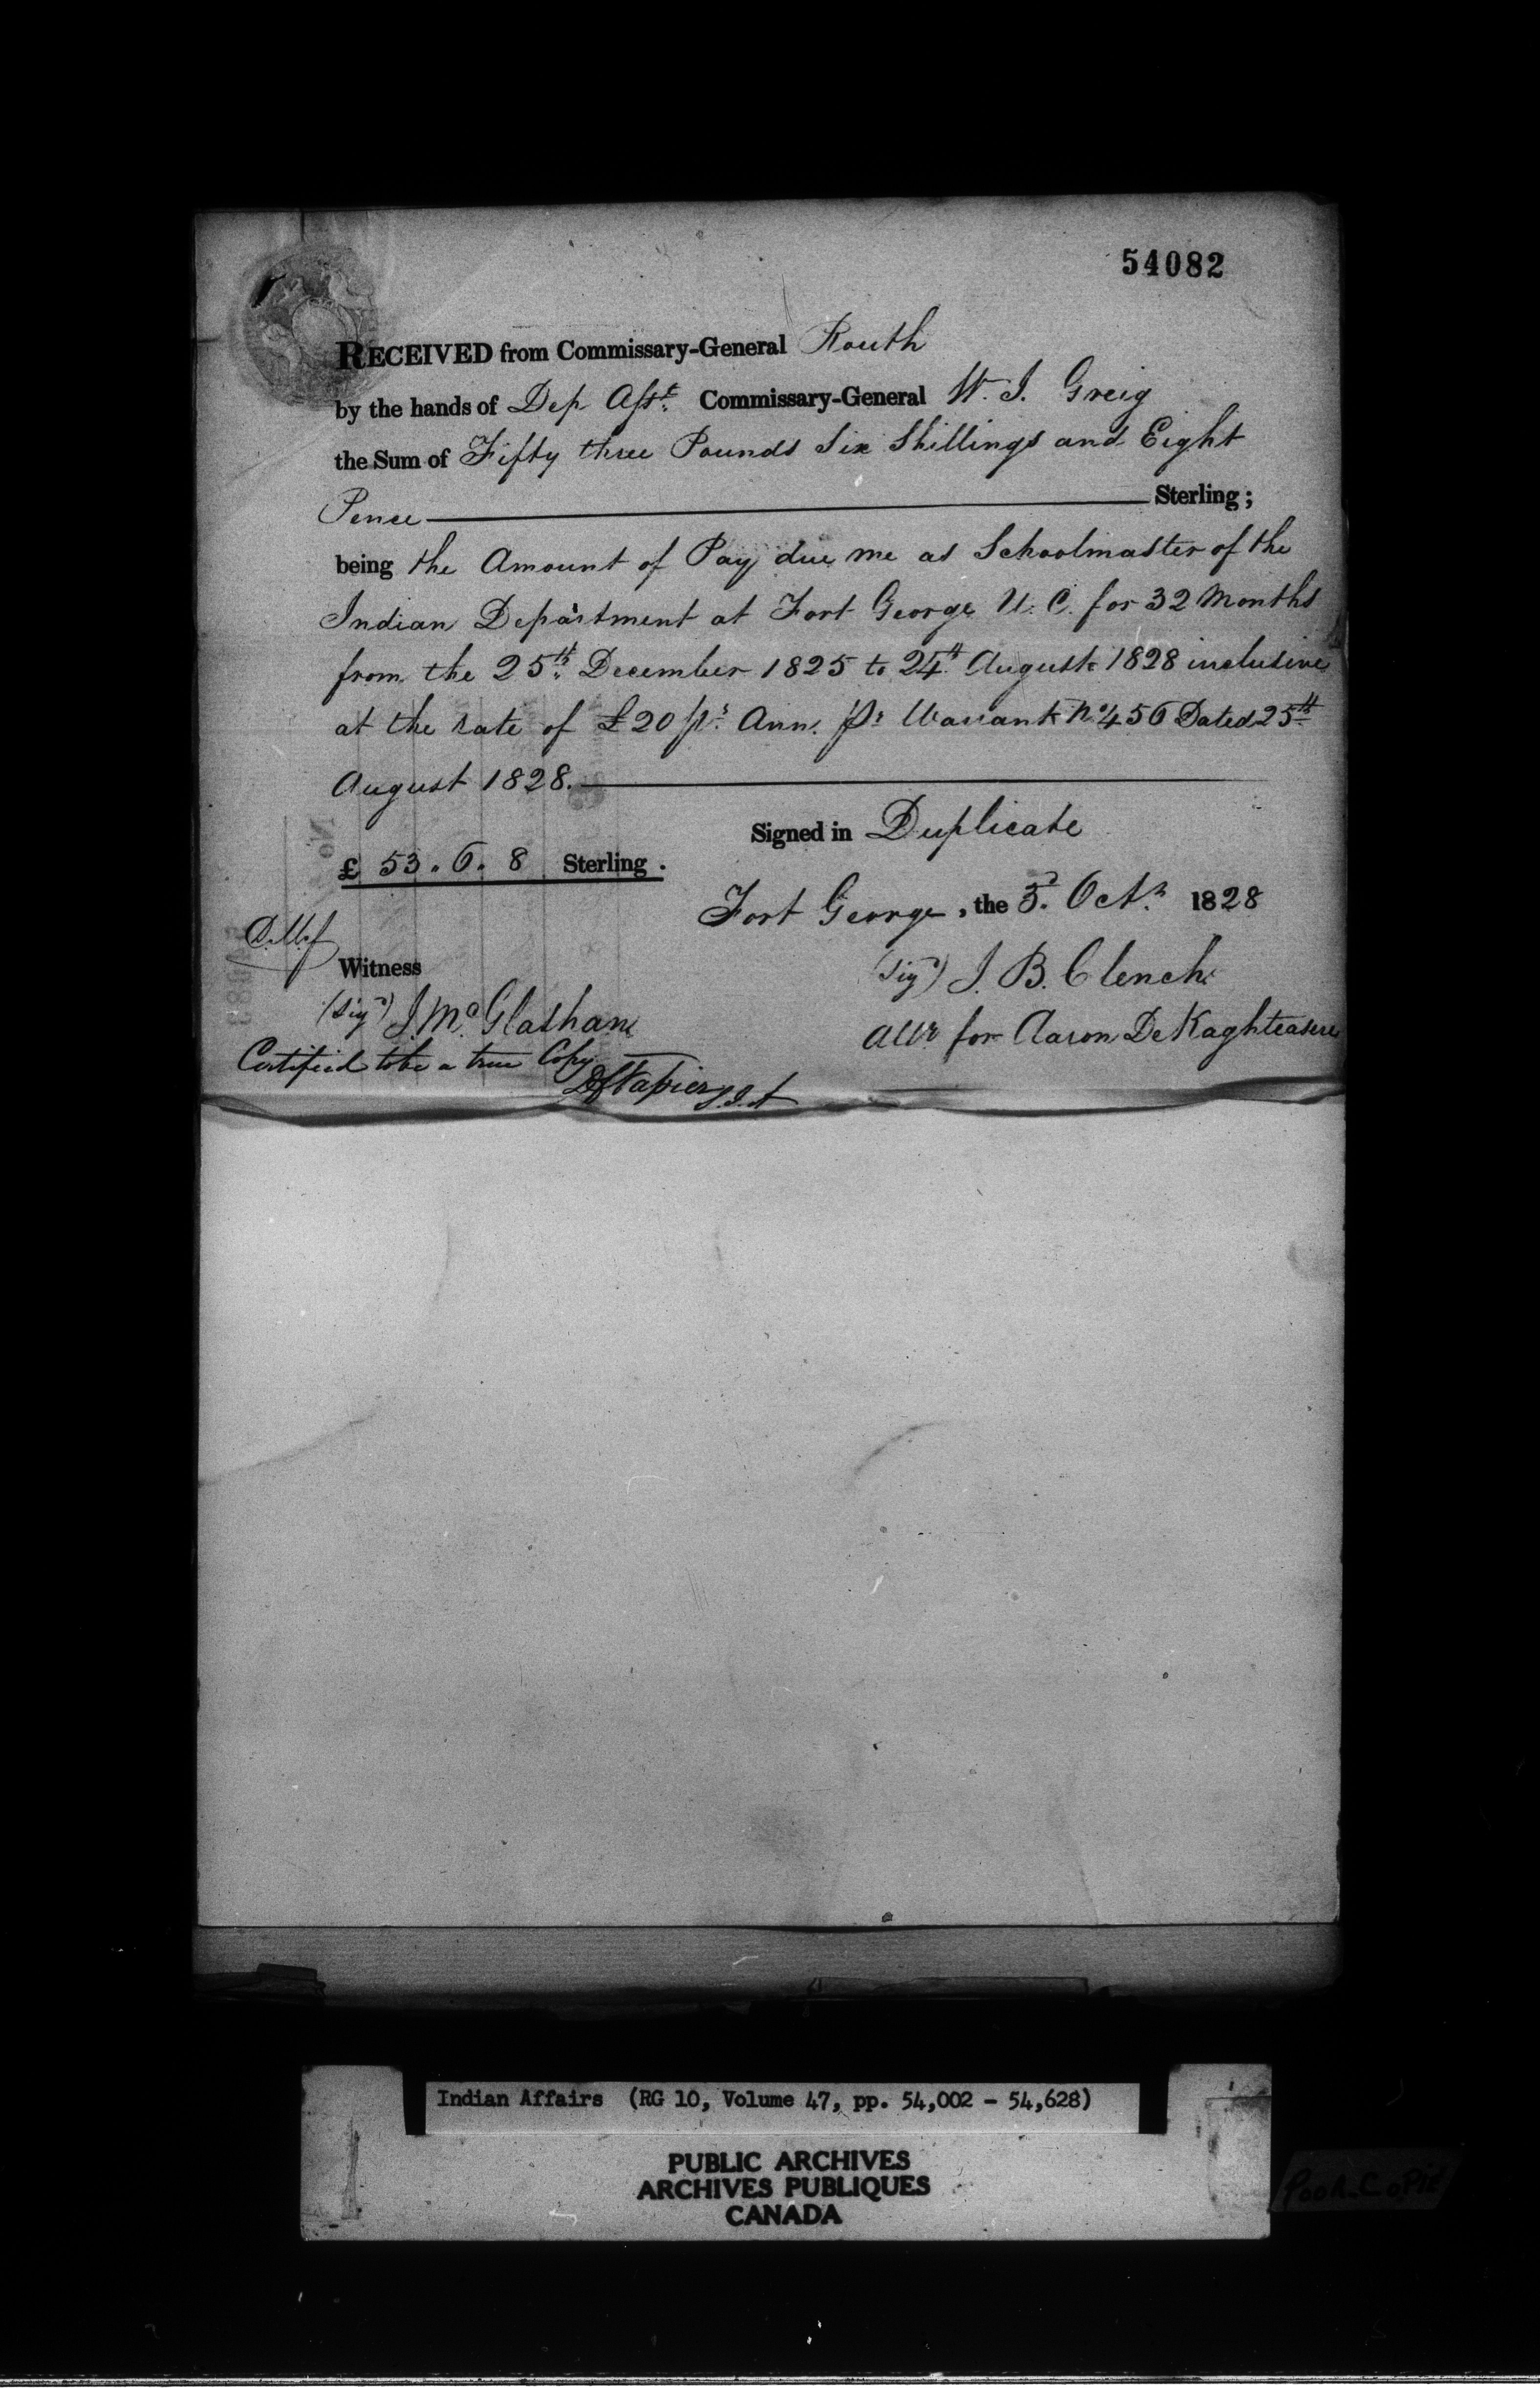 54082
RECEIVED from Commissary-General Routh
by the hands of Dep Asst. Commissary-General W. J. Greig
the Sum of Fifty three Pounds Six Shillings and Eight
Pence Sterling;
being the Amount of Pay due me as Schoolmaster of the
Indian Department at Fort George U. C. for 32 Months
from the 25th December 1825 to 24th August 1828 inclusive
at the rate of £20 pr. Ann. pr Warrant No 456 Dated 25th
August 1828.
Signed in Duplicate
£ 53. 6. 8 Sterling.
Fort George, the 3d. Octr. 1828
Witness
(Sigd) J. B. Clench
(Sigd) J. McGlashan
Atty for Aaron DeKaghteasere
Certified to be a true Copy
DC Napier S.I.A
Indian Affairs (RG 10, Volume 47, pp. 54,002 - 54,628)
PUBLIC ARCHIVES
ARCHIVES PUBLIQUES
CANADA
Poor Copie